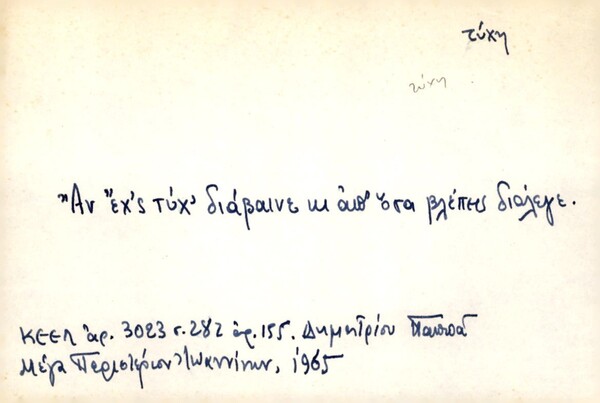 τύχη
τύχη
Ἂν ἔχ'ς τύχ' διάβαινε κι ἀπ' ὅσα βλέπεις διάλεγε.
ΚΕΕΛ ἀρ. 3023 σ. 282 ἀρ. 155. Δημητρίου Παππᾶ
Μέγα Περιστέριον Ἰωαννίνων, 1965